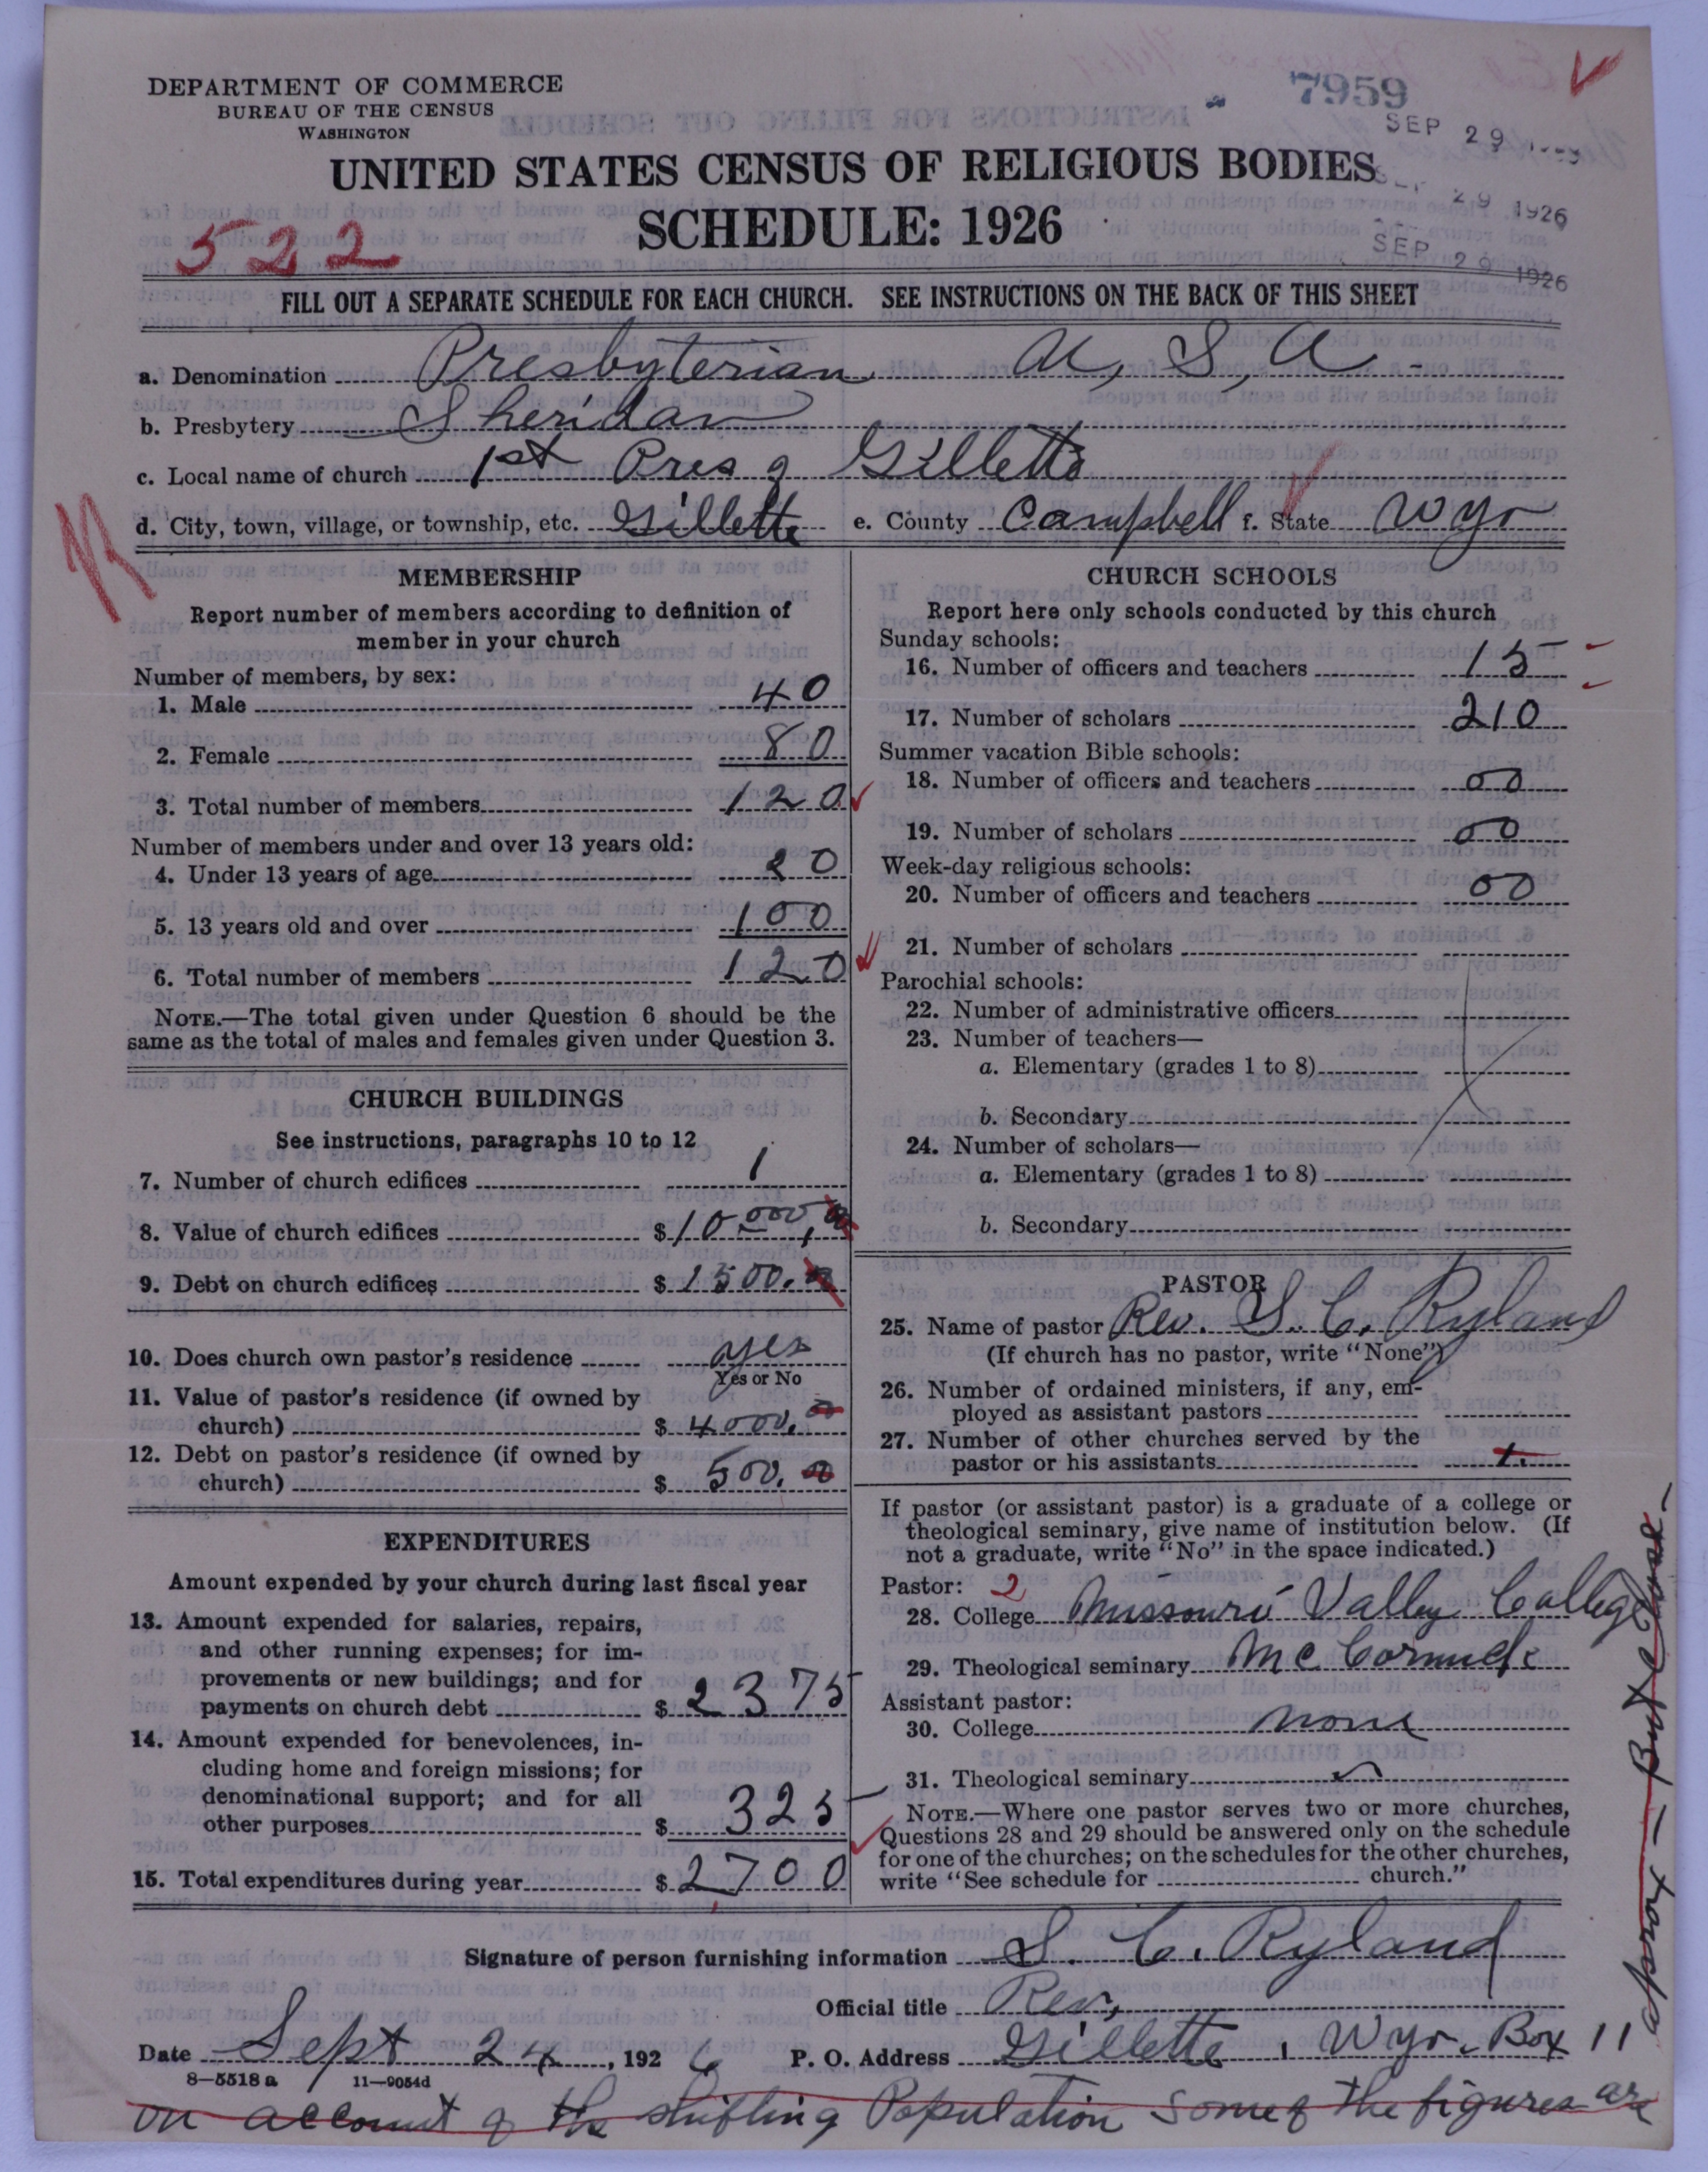 DEPARTMENT OF COMMERCE
BUREAU OF THE CENSUS
WASHINGTON
7959
SEP 29 1926
SEP 29 1926
SEP 29 1926
UNITED STATES CENSUS OF RELIGIOUS BODIES
SCHEDULE: 1926
522
FILL OUT A SEPARATE SCHEDULE FOR EACH CHURCH. SEE INSTRUCTIONS ON THE BACK OF THIS SHEET
a. Denomination Presbyterian U, S, A
b. Presbytery Sheridan
c. Local name of church 1st Pres of Gillette
d. City, town, village, or township, etc. Gillette e. County Campbell f. State Wyo
MEMBERSHIP
Report number of members according to definition of
member in your church
Number of members, by sex:
1. Male 40
2. Female 80
3. Total number of members 120
Number of members under and over 13 years old:
4. Under 13 years of age 20
5. 13 years old and over 100
6. Total number of members 120
NOTE.—The total given under Question 6 should be the
same as the total of males and females given under Question 3.
CHURCH BUILDINGS
See instructions, paragraphs 10 to 12
7. Number of church edifices 1
8. Value of church edifices $10000,00
9. Debt on church edifices $1500.00
10. Does church own pastor's residence yes
Yes or No
11. Value of pastor's residence (if owned by
church) $4000.00
12. Debt on pastor's residence (if owned by
church) $500.00
EXPENDITURES
Amount expended by your church during last fiscal year
13. Amount expended for salaries, repairs,
and other running expenses; for im-
provements or new buildings; and for
payments on church debt $2375
14. Amount expended for benevolences, in-
cluding home and foreign missions; for
denominational support; and for all
other purposes $325
15. Total expenditures during year $2700
CHURCH SCHOOLS
Report here only schools conducted by this church
Sunday schools:
16. Number of officers and teachers 15
17. Number of scholars 210
Summer vacation Bible schools:
18. Number of officers and teachers 00
19. Number of scholars 00
Week-day religious schools:
20. Number of officers and teachers 00
21. Number of scholars
Parochial schools:
22. Number of administrative officers
23. Number of teachers—
a. Elementary (grades 1 to 8)
b. Secondary
24. Number of scholars—
a. Elementary (grades 1 to 8)
b. Secondary
PASTOR
25. Name of pastor Rev. S. C. Ryland
(If church has no pastor, write "None")
26. Number of ordained ministers, if any, em-
ployed as assistant pastors
27. Number of other churches served by the
pastor or his assistants
If pastor (or assistant pastor) is a graduate of a college or
theological seminary, give name of institution below. (If
not a graduate, write "No" in the space indicated.)
Pastor: 2
28. College Missouri Valley College
29. Theological seminary McCormick
Assistant pastor:
30. College none
31. Theological seminary
NOTE.—Where one pastor serves two or more churches,
Questions 28 and 29 should be answered only on the schedule
for one of the churches; on the schedules for the other churches,
write "See schedule for church."
Signature of person furnishing information S. C. Ryland
Official title Rev,
Date Sept 24, 1926 P. O. Address Gillette, Wyo. Box 11
8—5518a 11—9054d
on account of the shifting Population some of the figures are
approx - But close -